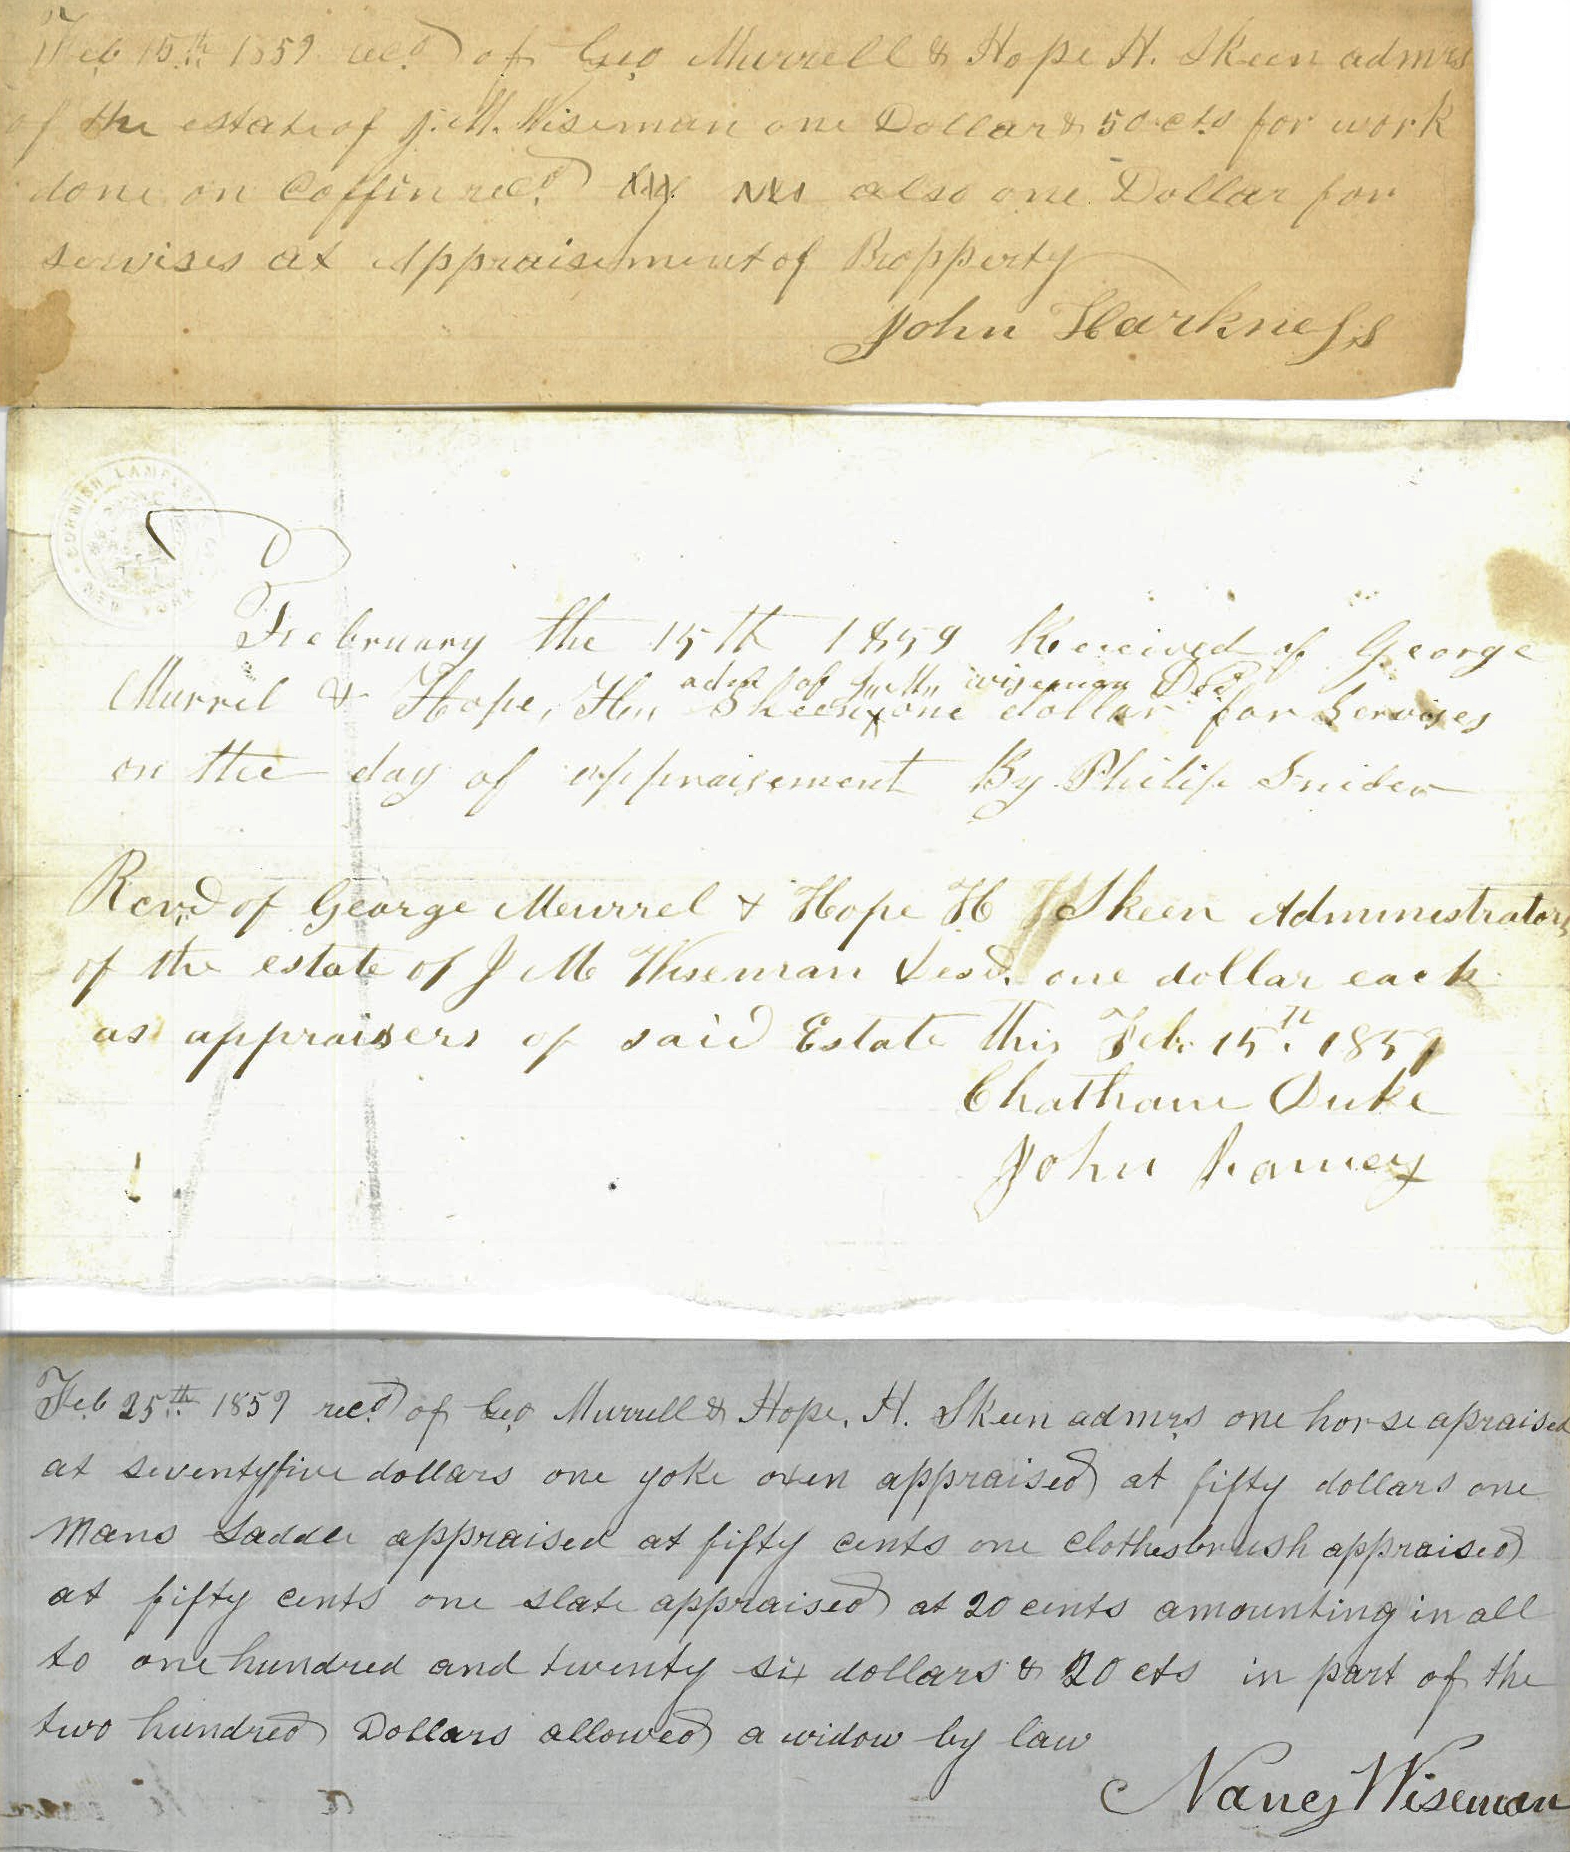 Feb 15th 1859 recd of Geo Murrell & Hope H. Skeen admrs
of the estate of J. M. Wiseman one Dollar & 50 cts for work
done on Coffin recd also one Dollar for
servises at Appraisement of Propperty
John Harkness
CORNISH LAMP
February the 15th 1859 Received of George
admr of J,, M,, wiseman Dcd
Murrel & Hope, H,, Skeen x one dollar for Servises
on the day of appraisement By Philip Snider
Recvd of George Murrel & Hope H Skeen Administrators
of the estate of J M Wiseman Decd. one dollar each
as appraisers of said Estate this Feb. 15th. 1859
Chatham Duke
John Ramey
Feb 25th 1859 recd of Geo Murrell & Hope. H. Skeen admrs one horse apraised
at seventyfive dollars one yoke oxen appraised at fifty dollars one
Mans Saddle appraised at fifty cents one clothesbrush appraised
at fifty cents one slate appraised at 20 cents amounting in all
to one hundred and twenty six dollars & 20 cts in part of the
two hundred Dollars allowed a widow by law
Nancy Wiseman